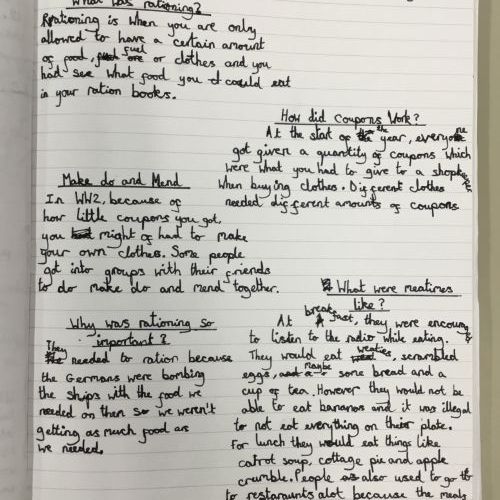 What was rationing?
Rationing is when you are only
allowed to have a certain amount
of food, fuel or clothes and you
had see what food you could eat
in your ration books.
How did coupons Work?
At the start of the year, everyone
got given a quantity of coupons which
were what you had to give to a shopkeeper
when buying clothes. Different clothes
needed different amounts of coupons
Make do and Mend
In WW2, because of
how little coupons you got,
you might of had to make
your own clothes. Some people
got into groups with their friends
to do make do and mend together.
What were meatimes
like?
At breakfast, they were encourag
to listen to the radio while eating.
They would eat weaties, scrambled
eggs, maybe some bread and a
cup of tea. However they would not be
able to eat bananas and it was illegal
to not eat everything on their plate.
For lunch they would eat things like
carrot soup, cottage pie and apple
crumble. People also used to go
to restaraunts alot because the meals
Why was rationing so
important?
They needed to ration because
the Germans were bombing
the ships with the food we
needed on then so we weren't
getting as much food as
we needed.